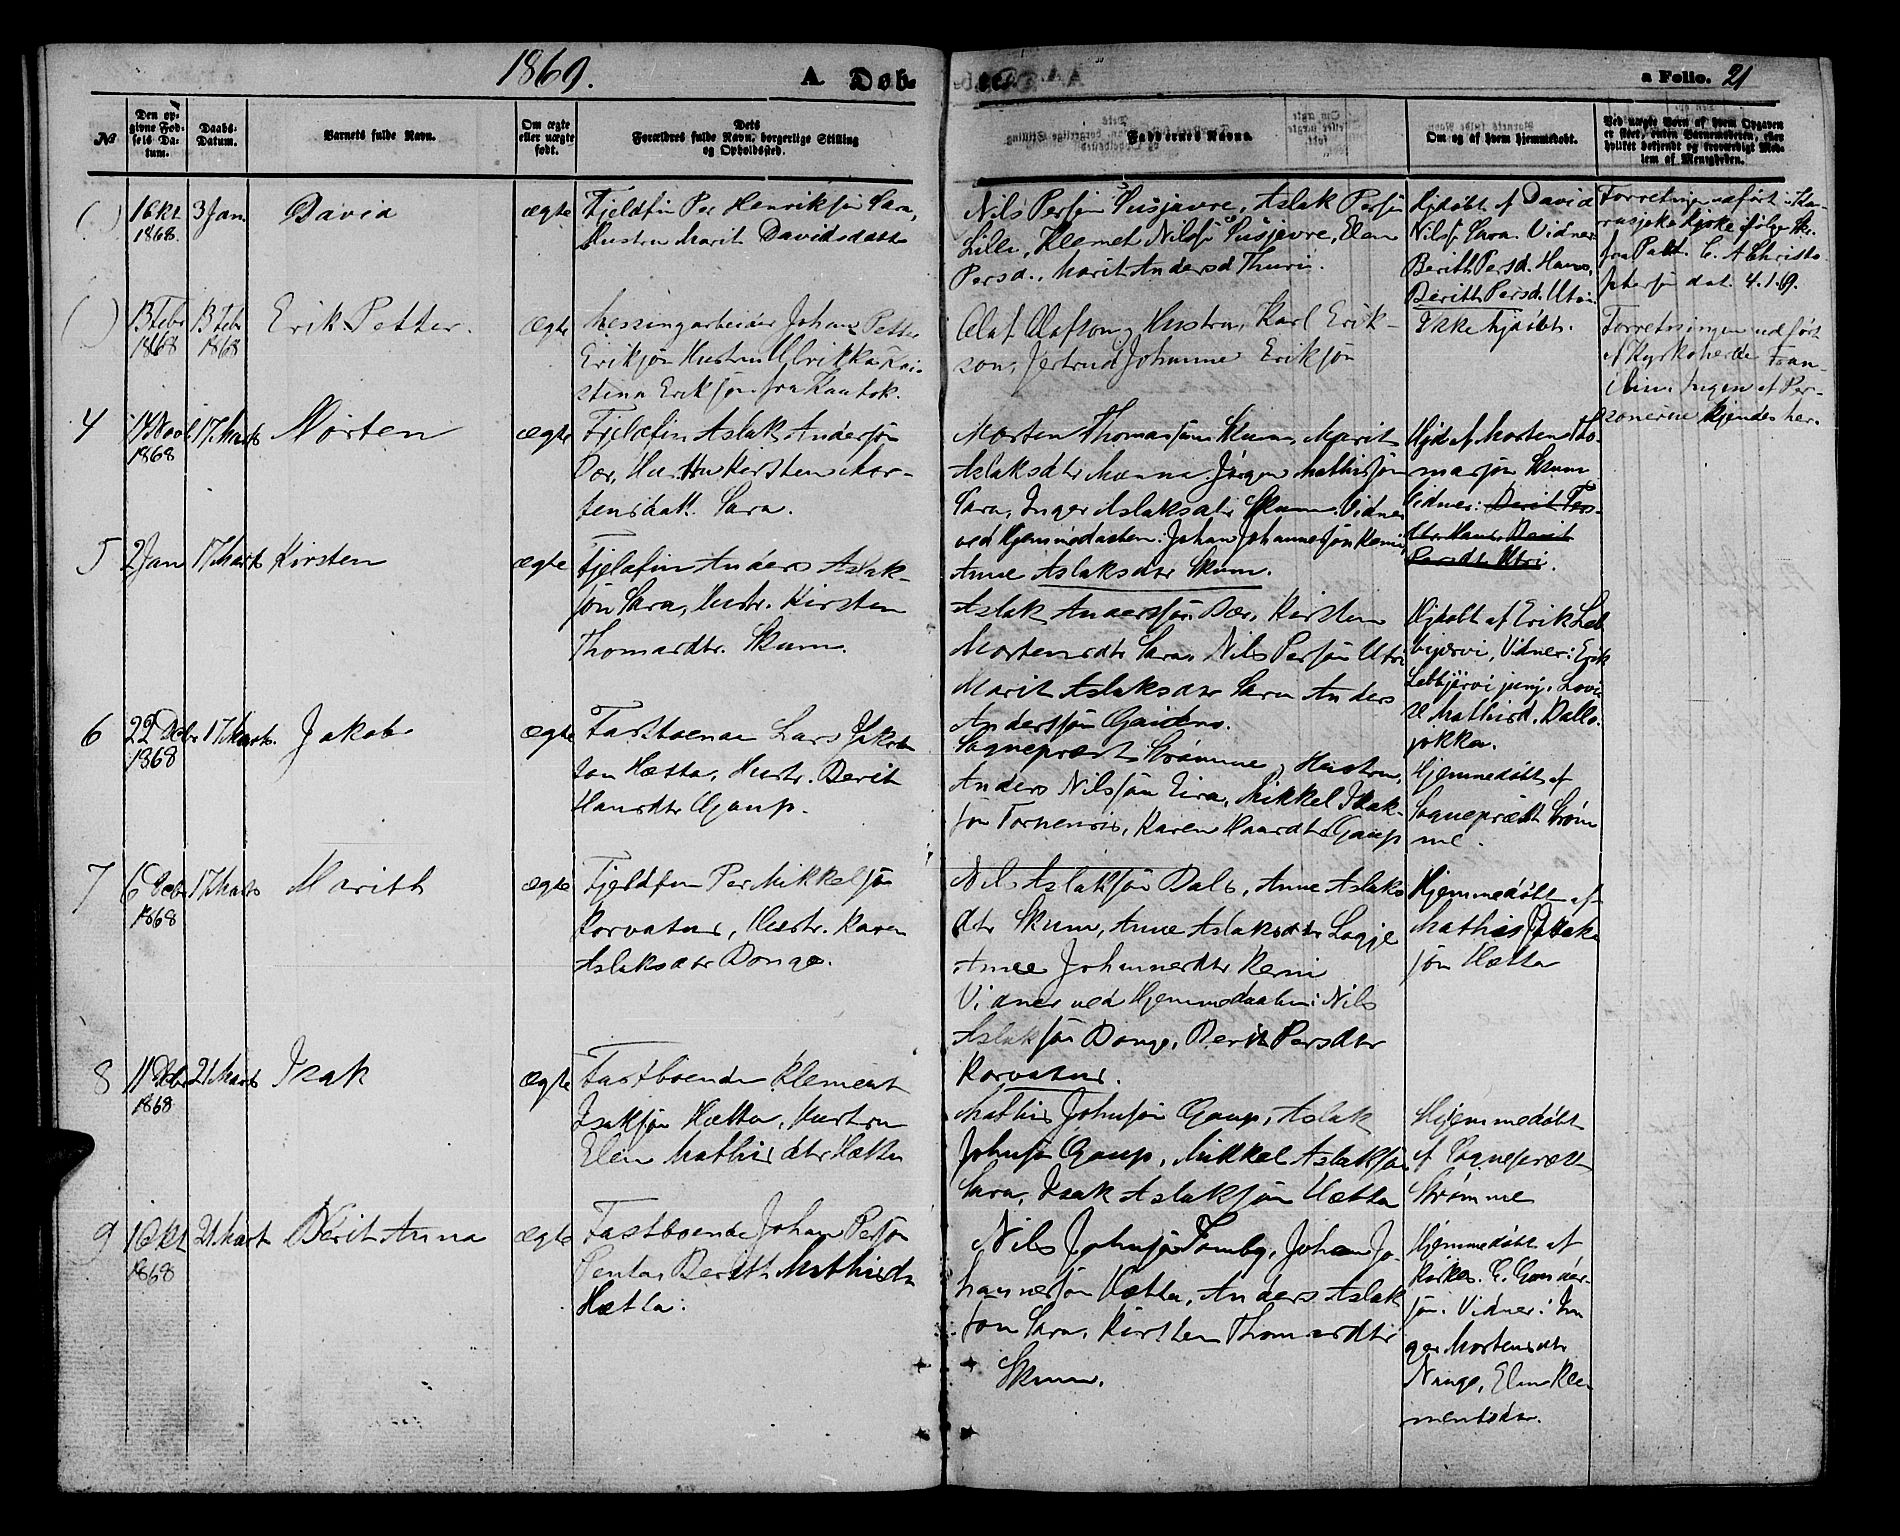 1869.
A. Døb-
a Folio. 21
№
Den op-
givne Fød-
sels Da-
tum.
Daabs-
Datum.
Barnets fulde Navn.
Om ægte
eller uægte
født.
Dets
Forældres fulde Navn, borgerlige Stilling
og Opholdssted.
Faddernes Navne.
Om og af hvem hjemmedøbt.
Ved uægte Barn af hvem Opgaven
er skeet, enten Barnemoderen, eller
hvilket bekjendt og troværdigt Med-
lem af Menigheden.
( )
16 kt
1868.
3 Jan.
David
ægte
Fjeldfin Per Henriksøn Sara,
Hustru Marit Davidsdatte
Nils Persøn Susjavre, Aslak Persøn
Lille, Klemet Nilss. Susjevre, Elen
Persd., Marit Andersd. Thuri.
Hjdøbt af David
Nilss. Sara. Vidner
Berith Persd. Hans,
Berith Persd. Utsi
Forretningen udført i Ka-
rasjoks Kirke ifølge Skr.
fra Past. C. A. Christo
phersøn dat. 4.1.69.
( )
13 Febr
1868
13 Febr
1868
Erik Petter.
ægte
Messingarbeider Johan Petter
Eriksøn Hustru Ulrikka Kri-
stina Eriksøn fra Kautok.
Olaf Olafson, Hustru, Karl Erik-
son, Jertrud Johanne Eriksøn
Ikke hjdøbt.
Forretningen udført
af Kyrkoherde Fran-
Ingen af Per-
sonerne kjendes her.
4
14 Novb.
1868
17 Marts
Morten
ægte
Fjeldfin Aslak Andersøn
Bær, Hustru Kirsten Mor-
tensdatt. Sara.
Morten Thomassøn Skum, Marit
Aslaksdtr Manna Jørgen Mathissøn
Sara, Inger Aslaksdtr Skum. Vidner
ved Hjemmedaaben: Johan Johannessøn Kemi,
Anne Aslaksdtr Skum.
Hjd. af Morten Tho-
massøn Skum
Vidner: Berit Pers-
dtr Hans, Berit
Persdtr Utsi.
5
2 Jan
17 Marts
Kirsten
ægte
Fjeldfin Anders Aslak-
søn Sara, Hustr. Kirsten
Thomasdtr. Skum.
Aslak Anderssøn Bær, Kirsten
Mortensdtr Sara, Nils Persøn Utsi
Marit Aslaksdtr Sara Anders
Anderssøn Gaino.
Hjdøbt af Erik Leb
bijærvi, Vidner: Erik
Lebbijærvi jung. Lovi-
se Mathisd. Dallo-
jokka.
6
22 Debr
1868
17 Marts.
Jakob
ægte
Fastboende Lars Jakob
son Hætta, Hustr. Berit
Hansdtr Gaup.
Sognepræst Strømme, Hustru,
Anders Nilssøn Eira, Mikkel Isak-
søn Tornensis, Karen Hansdtr Gaup
Hjemmedøbt af
Sognepræst Strøm
me.
7
6 Octr
1868
17 Marts
Marith
ægte
Fjeldfin Per Mikkelsøn
Korvatus, Hustr. Karen
Aslaksdtr Bongo.
Nils Aslaksøn Bals, Anne Aslaks
dtr Skum, Anne Aslaksdtr Logje
Anne Johannesdtr Kemi
Vidner ved Hjemmedaaben: Nils
Aslaksøn Bongo, Berit Persdtr
Korvatus.
Hjemmedøbt af
Mathis Jakob
søn Hætta
8
11 Debr
1868
21 Marts
Isak
ægte
Fastboende Klement
Isaksøn Hætta, Hustru
Elen Mathisdtr Hætta
Mathis Johnsøn Gaup, Aslak
Johnsøn Gaup, Mikkel Aslaksøn
Sara, Isak Aslaksøn Hætta
Hjemmedøbt
af Sognepræst
Strømme
9
1 Okt
1868
21 Mart
Berit Anna
ægte
Fastboende Johan Persøn
Penta, Berith Mathisdr
Hætta.
Nils Johnsøn Tornby, Johan Jo-
hannessøn Hætta, Anders Aslak
søn Sara, Kirsten Thomasdtr
Skum.
Hjemmedøbt af
Kirkes. C. Gunder-
søn. Vidner: In
ger Mortensdtr
Nango, Elen Kle-
mentsdtr.